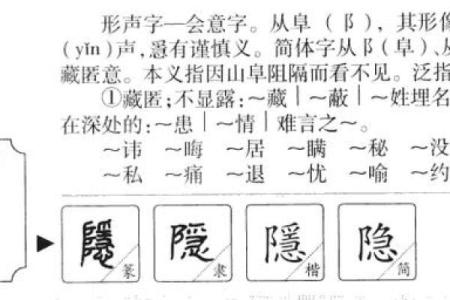 形声字—会意字。从阜（阝），其形像
(yǐn)声,㥯有谨慎义。简体字从阝(阜)、
藏匿意。本义指因山阜阻隔而看不见。泛指
①藏匿;不显露:～藏｜～蔽｜～姓埋名
在深处的:～患｜～情｜难言之～。
～讳 ～晦 ～居 ～瞒 ～秘 ～没
～私 ～痛 ～退 ～忧 ～喻 ～约
隱 隸 隱 楷 隐 简
篆